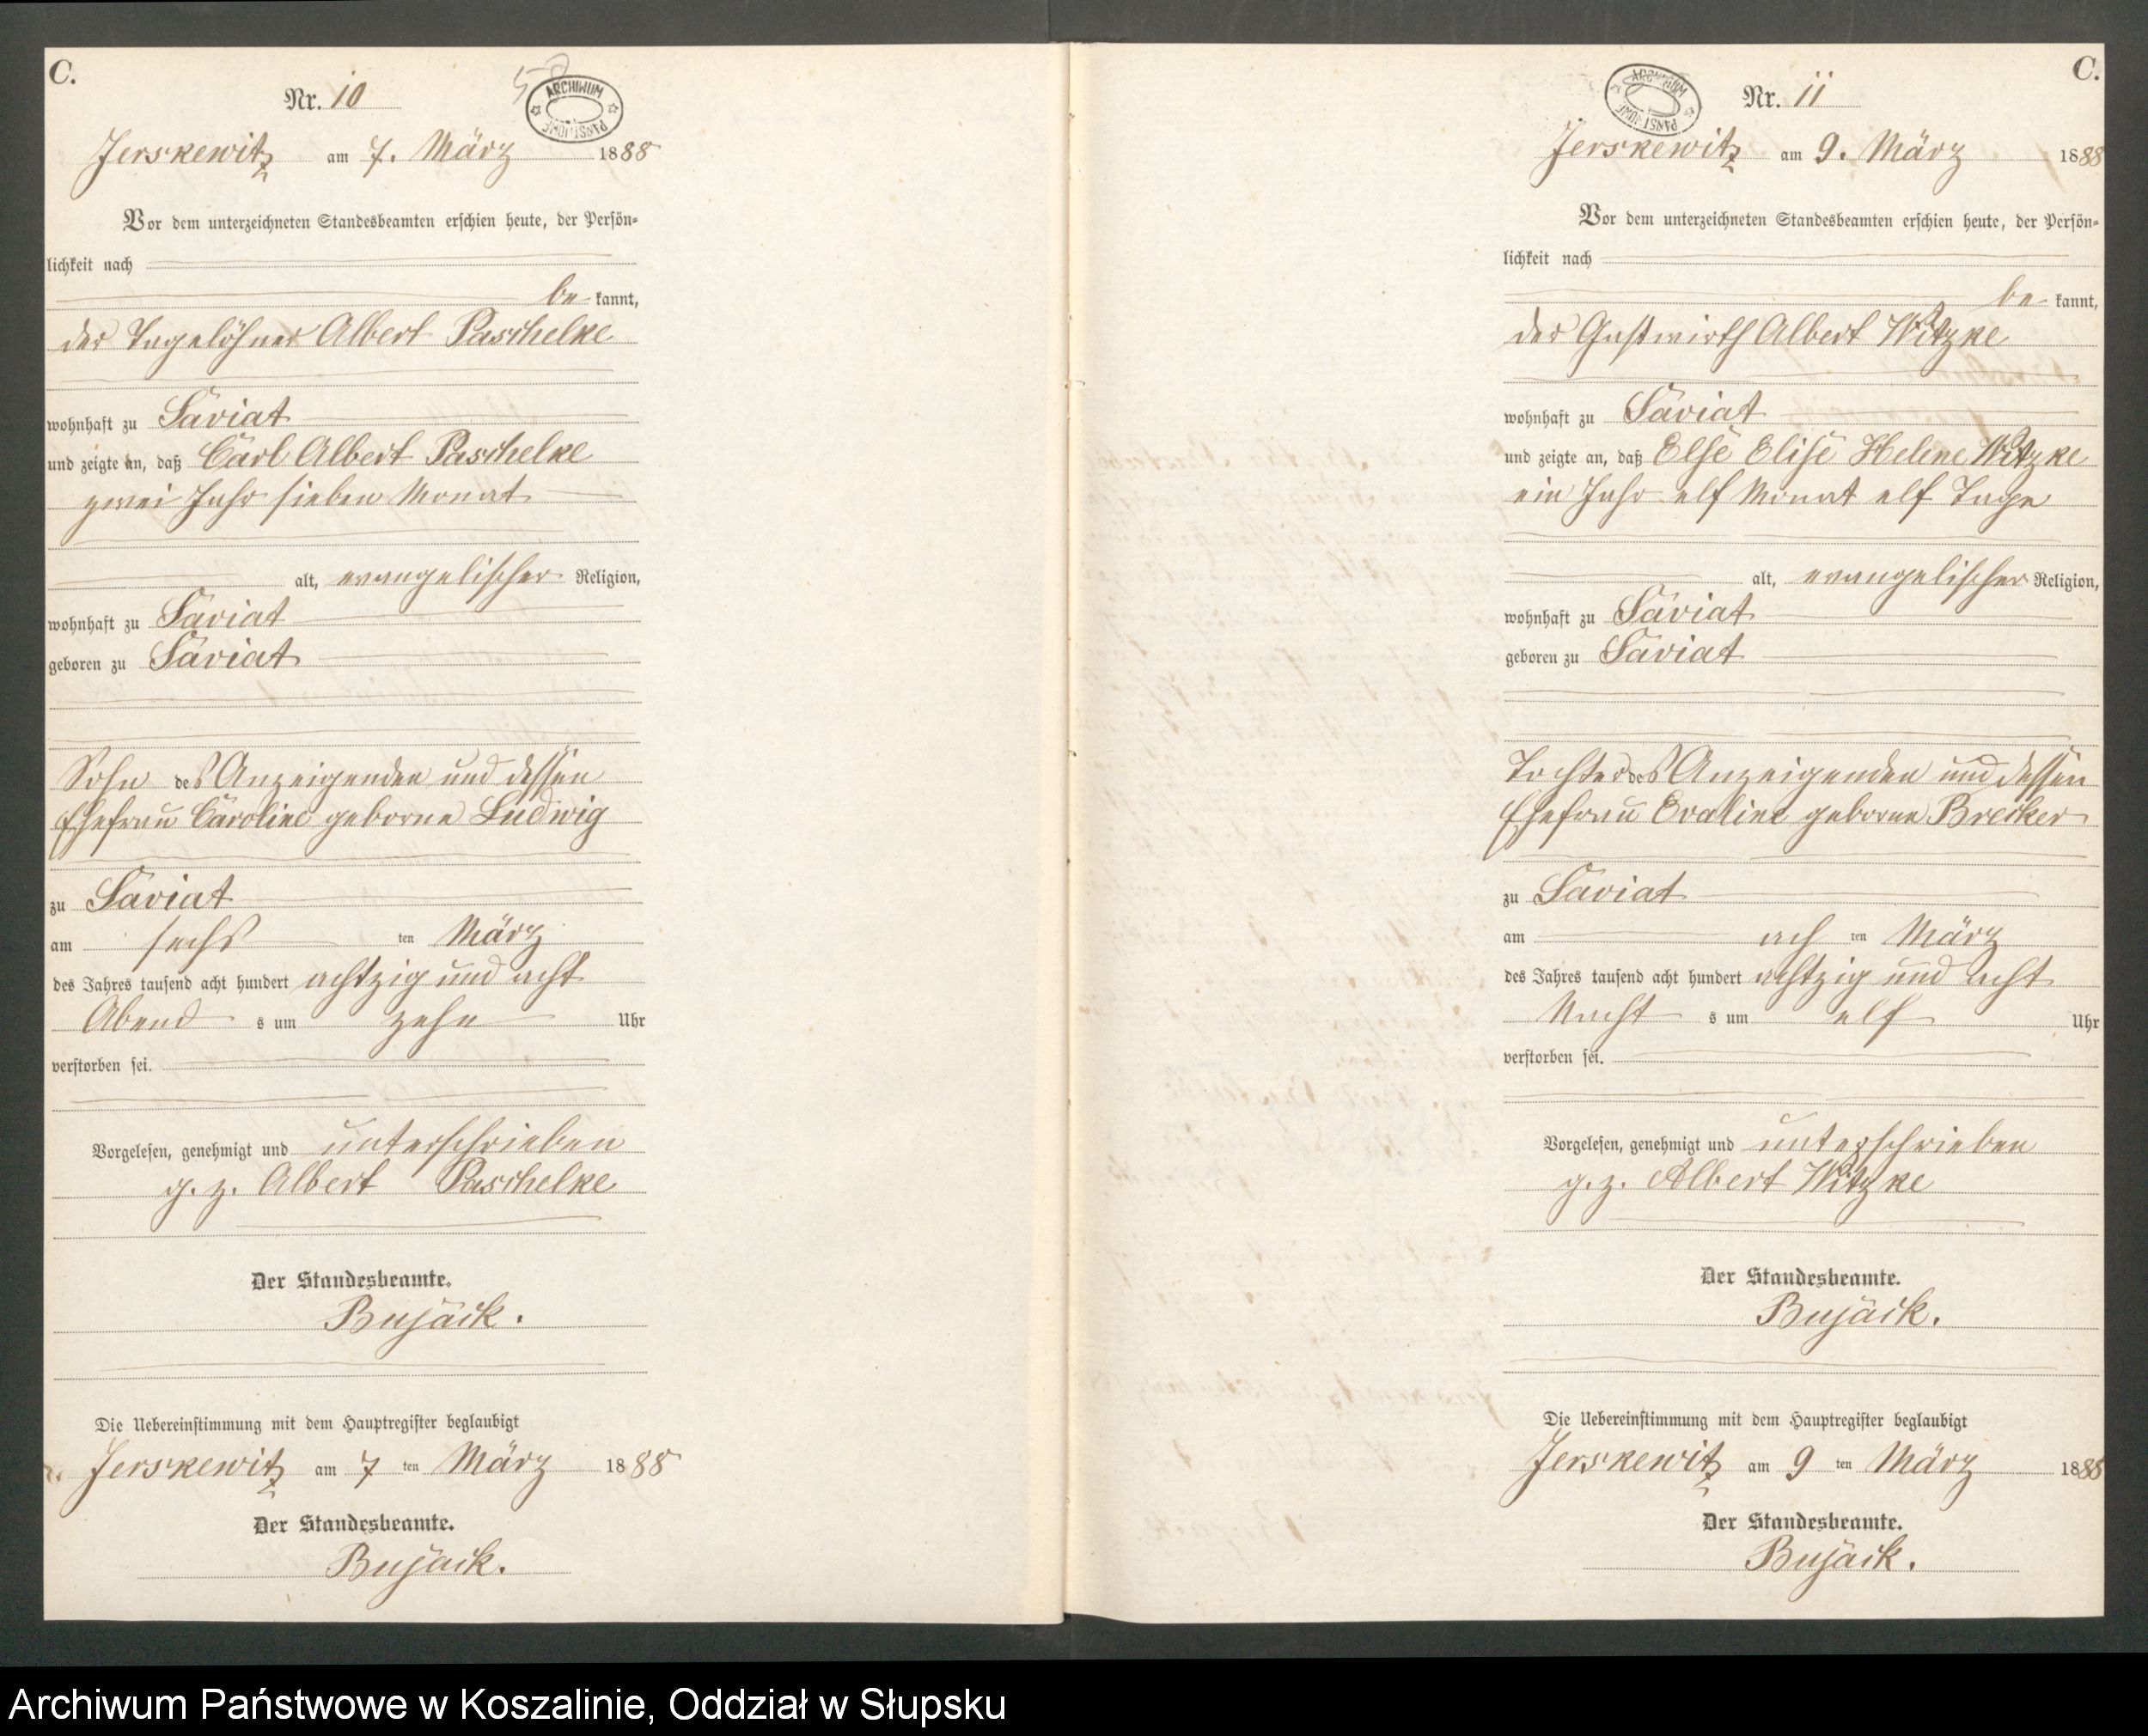 C.
Nr. 10
ARCHIWUM PAŃSTWOWE
Jerskewitz am 7. März 1888
Vor dem unterzeichneten Standesbeamten erschien heute, der Persön-
lichkeit nach
be kannt,
der Tagelöhner Albert Paschelke
wohnhaft zu Saviat
und zeigte an, daß Carl Albert Paschelke
zwei Jahr sieben Monat
alt, evangelischer Religion,
wohnhaft zu Saviat
geboren zu Saviat
Sohn des Anzeigenden und dessen
Ehefrau Caroline geborne Ludwig
zu Saviat
am sechs ten März
des Jahres tausend acht hundert achtzig und acht
Abend s um zehn Uhr
verstorben sei.
Vorgelesen, genehmigt und unterschrieben
g. z. Albert Paschelke
Der Standesbeamte.
Bujack.
Die Uebereinstimmung mit dem Hauptregister beglaubigt
Jerskewitz am 7 ten März 1888
Der Standesbeamte.
Bujack.
C.
Nr. 11
ARCHIWUM PAŃSTWOWE
Jerskewitz am 9. März 1888
Vor dem unterzeichneten Standesbeamten erschien heute, der Persön-
lichkeit nach
be kannt,
der Gastwirth Albert Witzke
wohnhaft zu Saviat
und zeigte an, daß Else Elise Helene Witzke
ein Jahr elf Monat elf Tage
alt, evangelischer Religion,
wohnhaft zu Saviat
geboren zu Saviat
Tochter des Anzeigenden und dessen
Ehefrau Evaline geborne Brecker
zu Saviat
am ach ten März
des Jahres tausend acht hundert achtzig und acht
Nacht s um elf Uhr
verstorben sei.
Vorgelesen, genehmigt und unterschrieben
g. z. Albert Witzke
Der Standesbeamte.
Bujack.
Die Uebereinstimmung mit dem Hauptregister beglaubigt
Jerskewitz am 9 ten März 1888
Der Standesbeamte.
Bujack.
Archiwum Państwowe w Koszalinie, Oddział w Słupsku